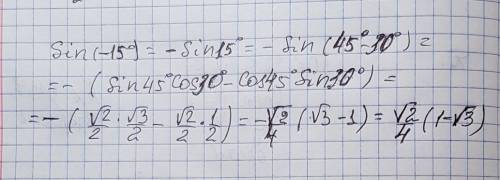 Sin(-15°) = -Sin15° = -Sin(45°-30°) =
= -(Sin45°Cos30° - Cos45°Sin30°) =
= -(√2/2 · √3/2 - √2/2 · 1/2) = -√2/4 (√3 - 1) = √2/4 (1-√3)